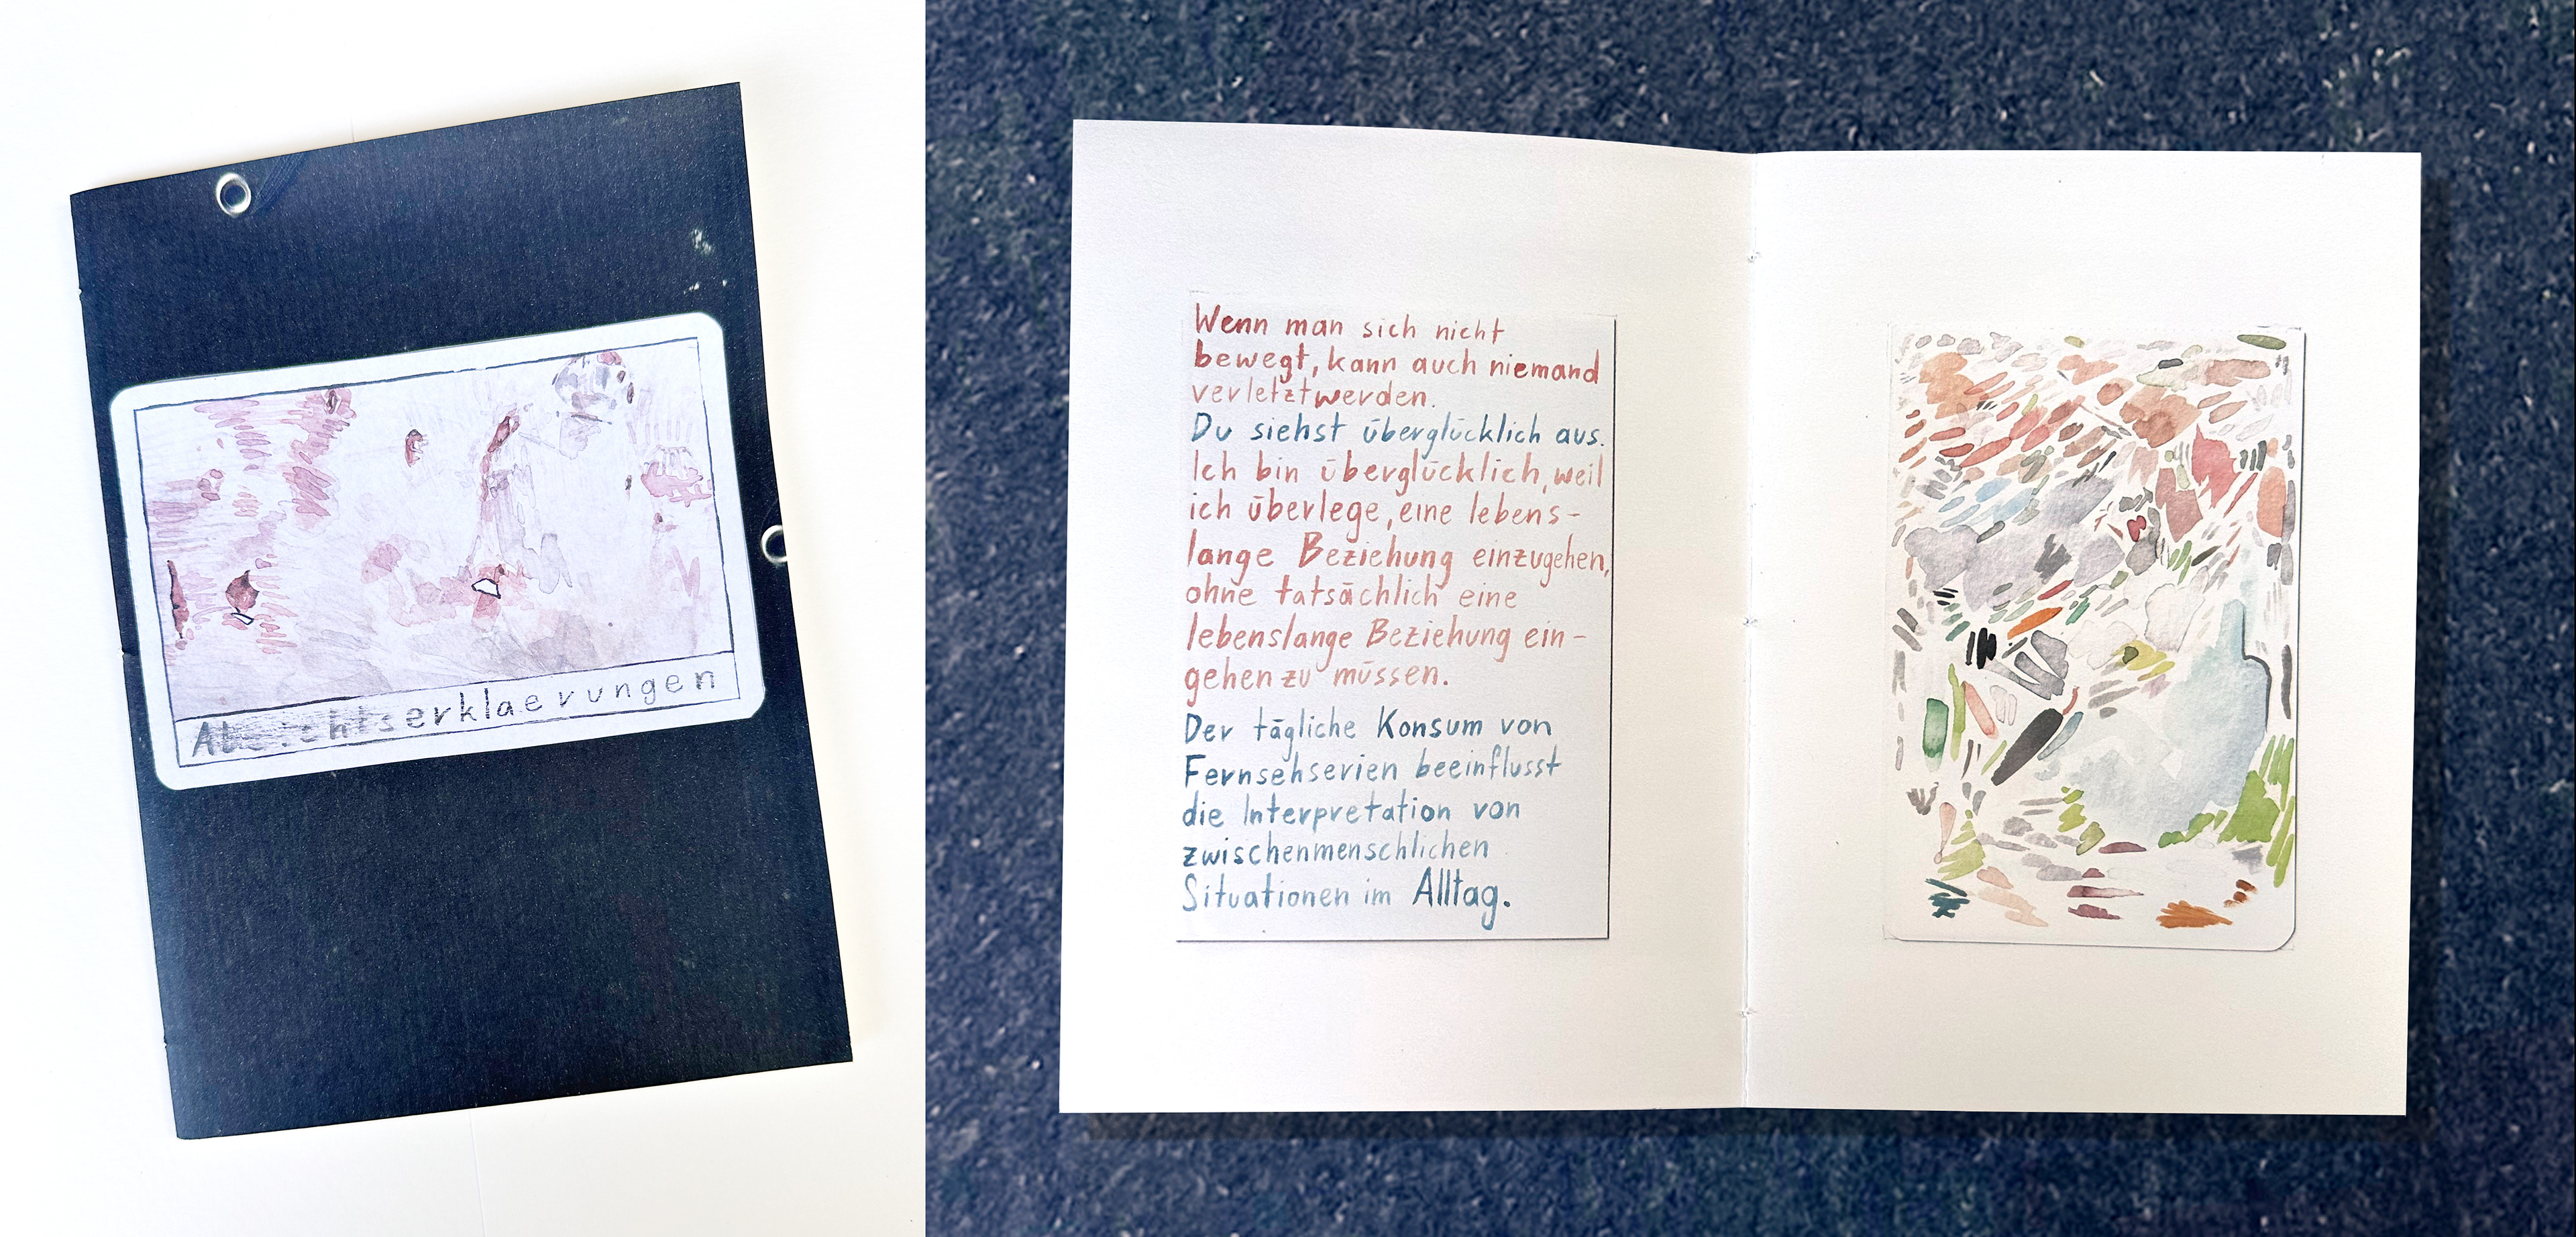 Absichtserklaerungen
Wenn man sich nicht
bewegt, kann auch niemand
verletzt werden.
Du siehst überglücklich aus.
Ich bin überglücklich, weil
ich überlege, eine lebens-
lange Beziehung einzugehen,
ohne tatsächlich eine
lebenslange Beziehung ein-
gehen zu müssen.
Der tägliche Konsum von
Fernsehserien beeinflusst
die Interpretation von
zwischenmenschlichen
Situationen im Alltag.